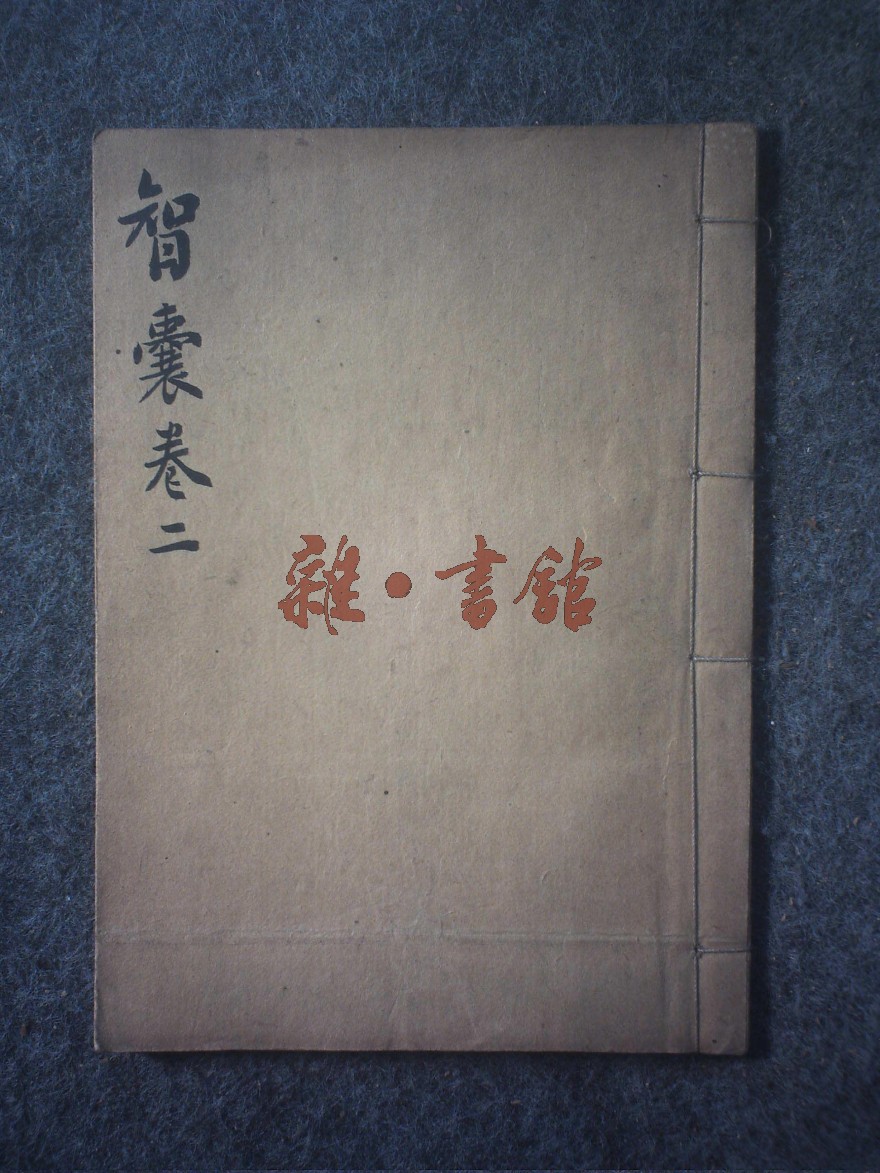 智囊卷二
雜·書館